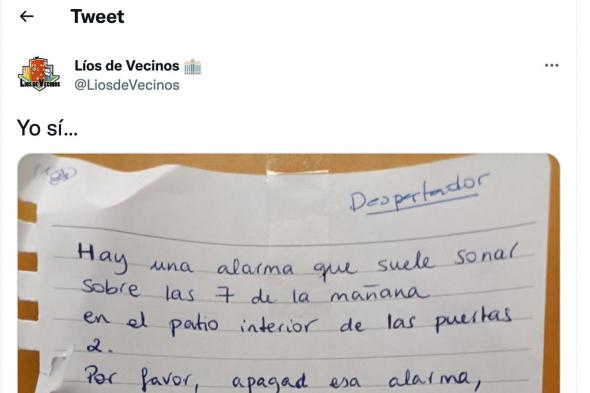 Tweet
Líos de Vecinos
@LiosdeVecinos
Yo sí...
Despertador
Hay una alarma que suele sonar
sobre las 7 de la mañana
en el patio interior de las puertas
2.
Por favor, apagad esa alarma,